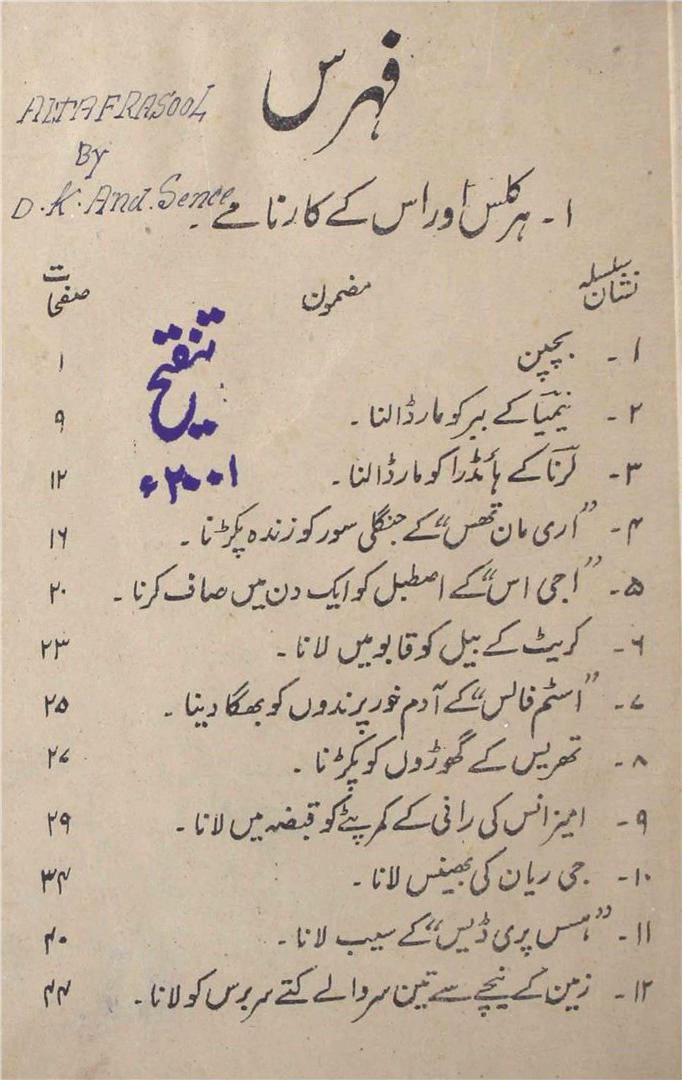 فہرس
ALTAF RASOOL
By
D.K. And. Sence
۱۔ ہرکلس اور اس کے کارنامے۔
سلسلہ نشان مضمون صفحات
تنقیح
۲۰۰۱ء
۱۔ بچپن ۱
۲۔ نیمیا کے ببر کو مار ڈالنا۔ ۹
۳۔ لرنا کے ہائڈرا کو مار ڈالنا۔ ۱۲
۴۔ "اری مان تھس" کے جنگلی سور کو زندہ پکڑنا۔ ۱۶
۵۔ "اجی اس" کے اصطبل کو ایک دن میں صاف کرنا۔ ۲۰
۶۔ کریٹ کے بیل کو قابو میں لانا۔ ۲۳
۷۔ "اسٹم فالس" کے آدم خور پرندوں کو بھگا دینا۔ ۲۵
۸۔ تھریس کے گھوڑوں کو پکڑنا۔ ۲۷
۹۔ امیزانس کی رانی کے کمر پٹے کو قبضہ میں لانا۔ ۲۹
۱۰۔ جی ریان کی بھینس لانا۔ ۳۴
۱۱۔ "ہس پری ڈیس" کے سیب لانا۔ ۴۰
۱۲۔ زمین کے نیچے سے تین سر والے کتے سربرس کو لانا۔ ۴۴